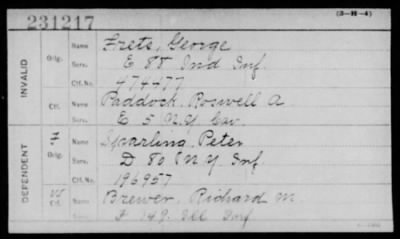 231217
(3-H-4)
INVALID
Orig.
Name Frets, George
Serv. E 88 Ind Inf.
Ctf. No. 474477
Ctf.
Name Paddock, Roswell A
Serv. E 5 N.Y. Cav.
DEPENDENT
Orig.
Name Sparling, Peter
Serv. D 80 N.Y. Inf.
Ctf. No. 196957
Ctf.
Name Brewer, Richard M.
Serv. F 149 Ill Inf